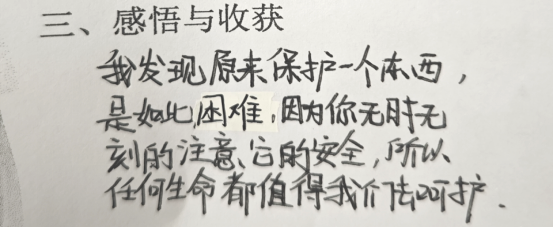 三、感悟与收获
我发现原来保护一个东西，
是如此困难，因为你无时无
刻的注意它的安全，所以
任何生命都值得我们去呵护.